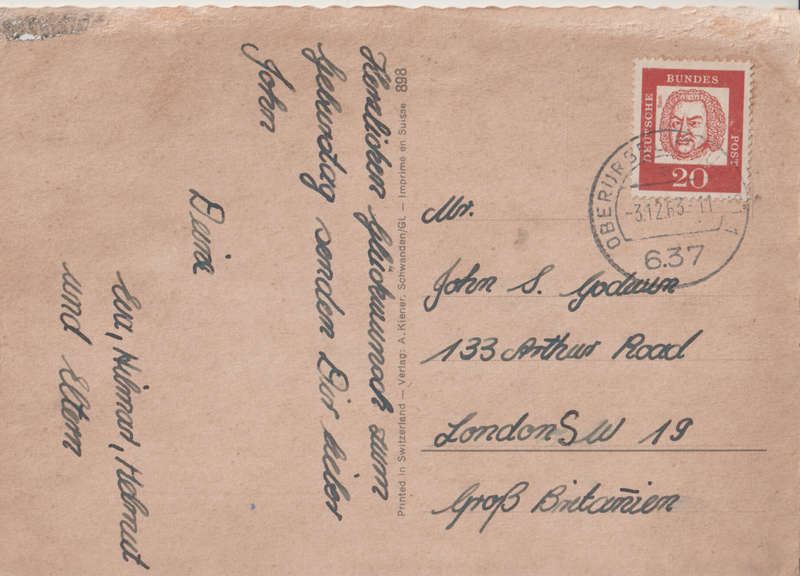 Herzlichen Glückwunsch zum
Geburtstag senden Dir lieber
John
Deine
Eva, Hilmar, Helmut
und Eltern
Printed in Switzerland — Verlag: A. Kiener, Schwanden/GL — Imprimé en Suisse 898
DEUTSCHE
BUNDES
POST
20
-3.12.63-11
6.37
Mr.
John S. Godwin
133 Arthur Road
London SW 19
Groß Britan̄ien